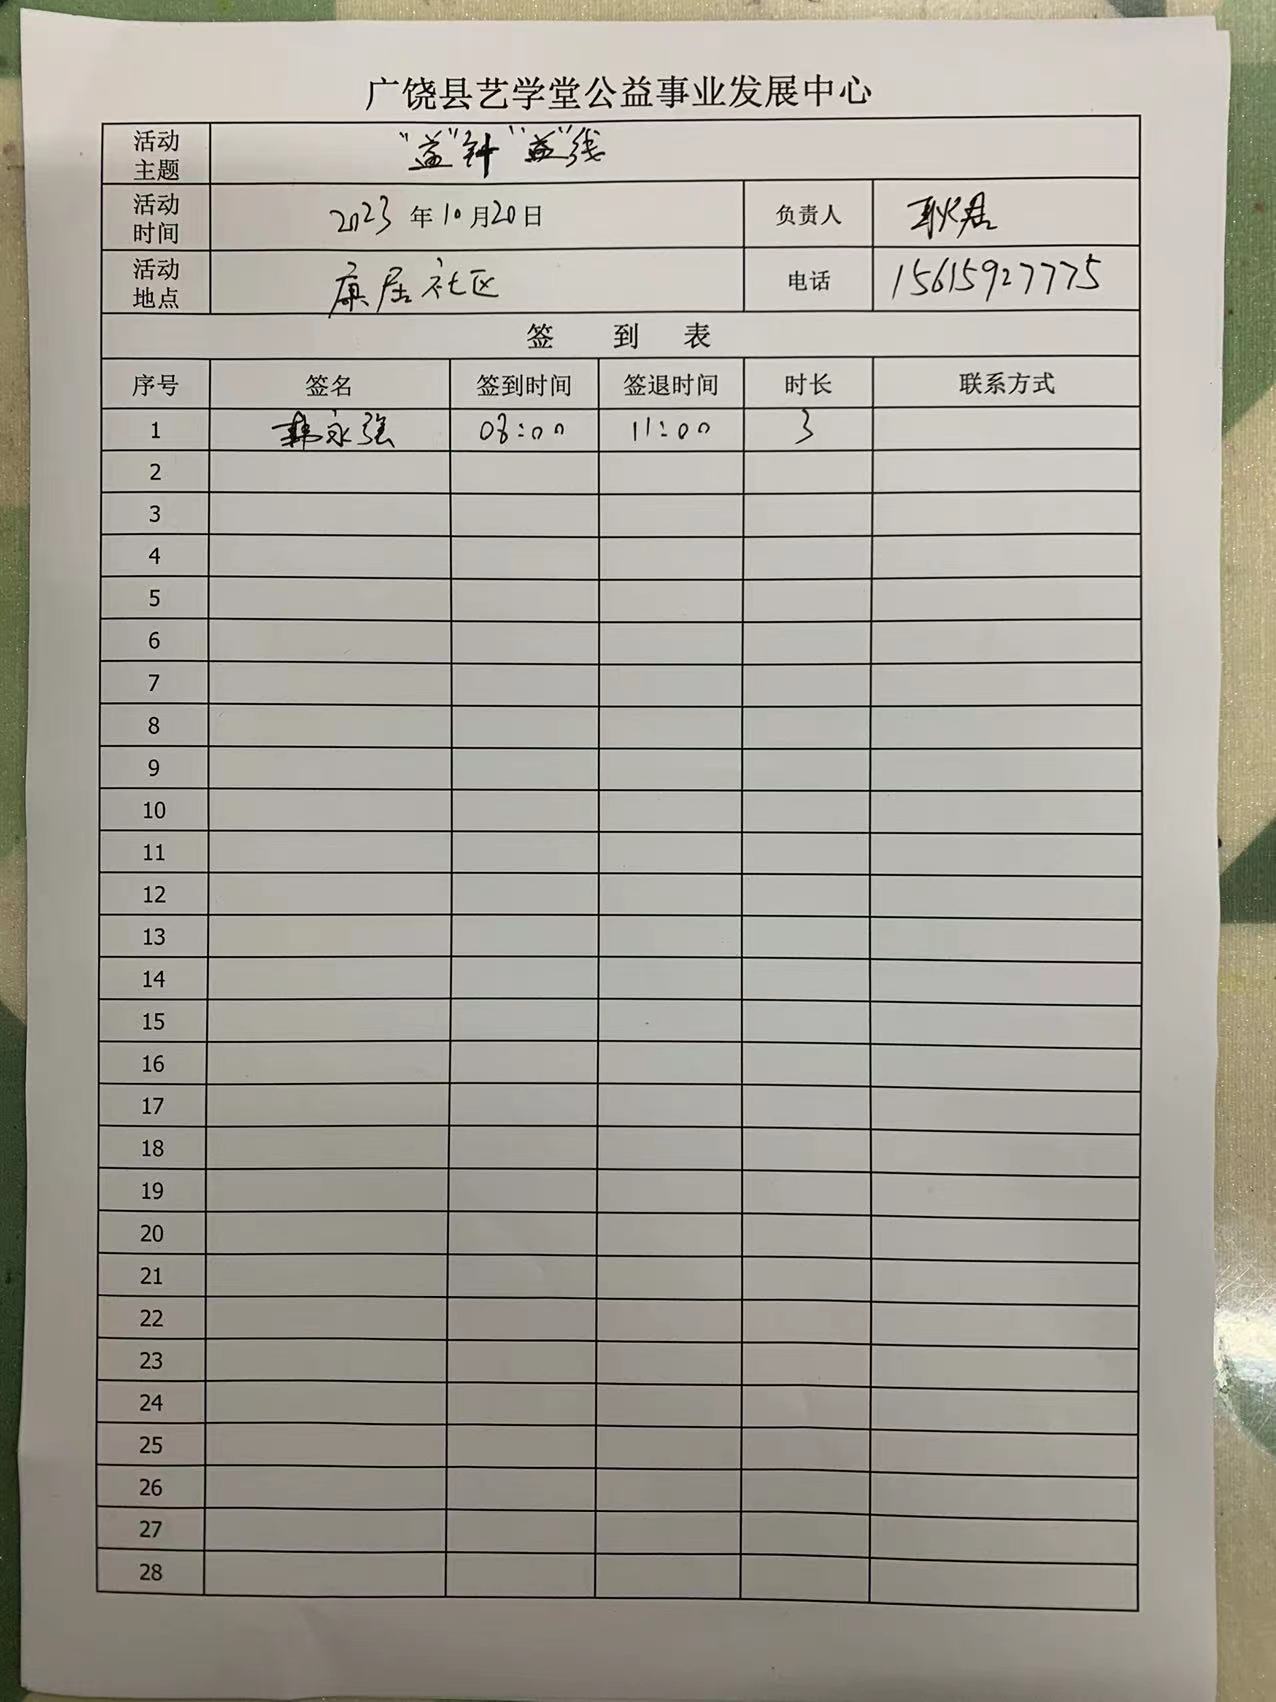 广饶县艺学堂公益事业发展中心
活动主题 “益”针“益”线
活动时间 2023年10月20日 负责人 耿居
活动地点 康居社区 电话 15615927775
签 到 表
序号 签名 签到时间 签退时间 时长 联系方式
1 韩永强 08:00 11:00 3
2
3
4
5
6
7
8
9
10
11
12
13
14
15
16
17
18
19
20
21
22
23
24
25
26
27
28